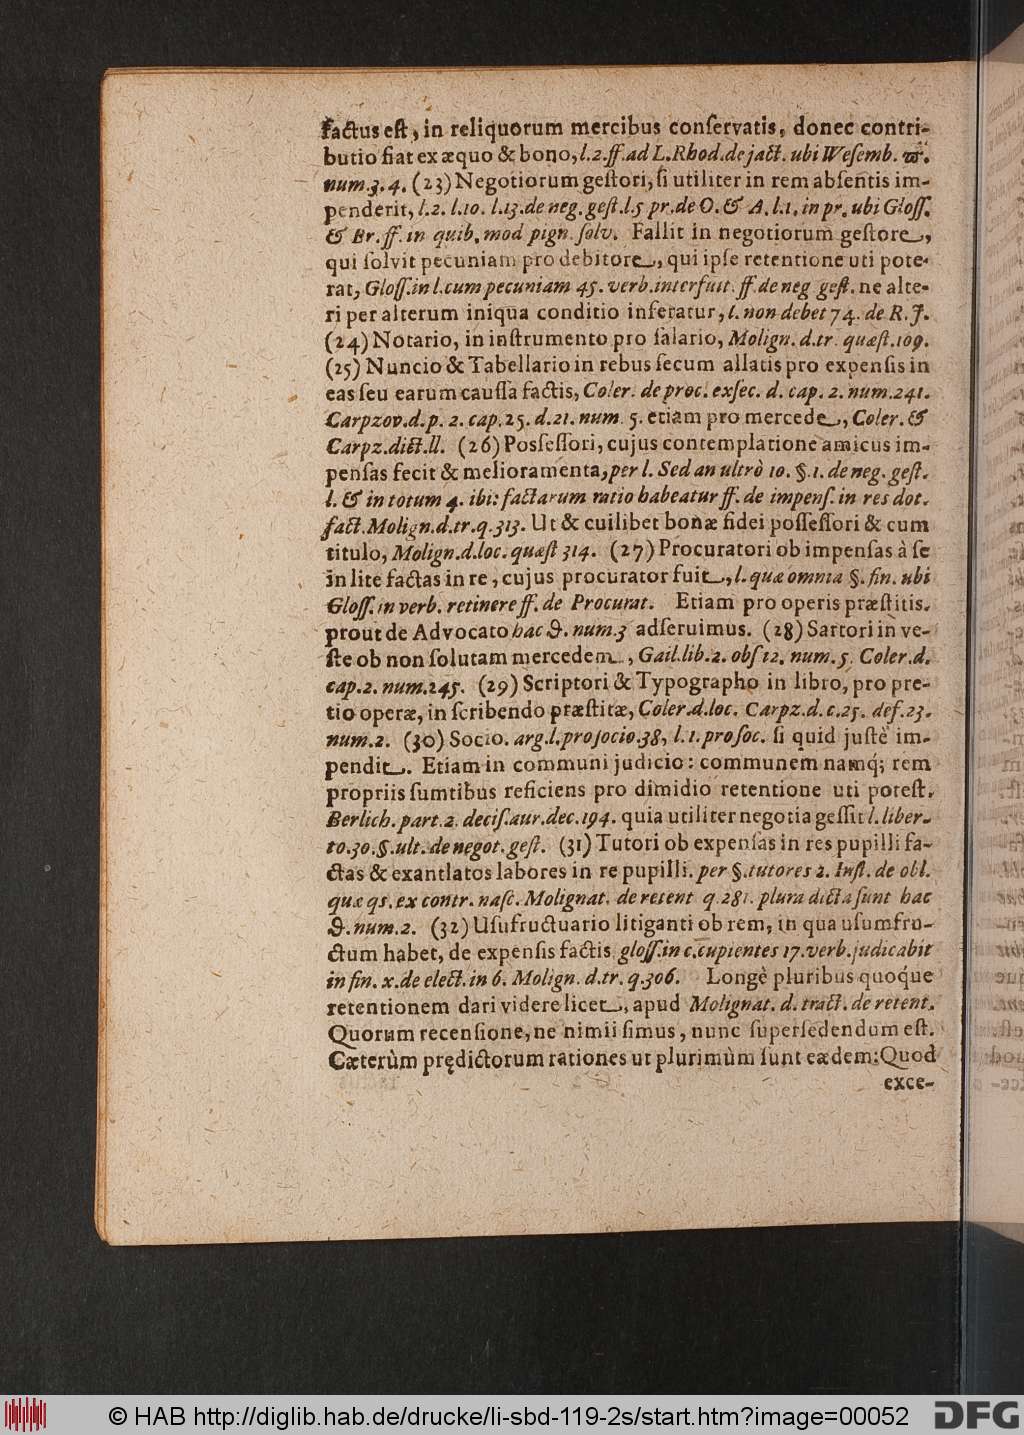 factus est, in reliquorum mercibus conservatis, donec contri-
butio fiat ex æquo & bono, l. 2. ff. ad L. Rhod. de jact. ubi Wesemb.
num. 3. 4. (23) Negotiorum gestori, si utiliter in rem absentis im-
penderit, l. 2. l. 10. l. 13. de neg. gest. l. 5 pr. de O. & A. l. 1. in pr. ubi Gloss.
& Br. ff. in quib. mod pign. solv. Fallit in negotiorum gestore,
qui solvit pecuniam pro debitore, qui ipse retentione uti pote-
rat, Gloss. in l. cum pecuniam 45. verb. interfuit. ff. de neg gest. ne alte-
ri per alterum iniqua conditio inferatur, l. non debet 74. de R. J.
(24) Notario, in instrumento pro salario, Molign. d. tr. quæst. 109.
(25) Nuncio & Tabellario in rebus secum allatis pro expensis in
eas seu earum caussa factis, Coler. de proc. exsec. d. cap. 2. num. 241.
Carpzov. d. p. 2. cap. 25. d. 21. num. 5. etiam pro mercede, Coler. &
Carpz. dict. ll. (26) Possessori, cujus contemplatione amicus im-
pensas fecit & melioramenta, per l. Sed an ultrò 10. §. 1. de neg. gest.
l. & in totum 4. ibi: factarum ratio habeatur ff. de impens. in res dot.
fact. Molign. d. tr. q. 313. Ut & cuilibet bonæ fidei possessori & cum
titulo, Molign. d. loc. quæst 314. (27) Procuratori ob impensas à se
in lite factas in re, cujus procurator fuit, l. quæ omnia §. fin. ubi
Gloss. in verb. retinere ff. de Procurat. Etiam pro operis præstitis.
prout de Advocato hac ϑ. num. 3 adseruimus. (28) Sartori in ve-
ste ob non solutam mercedem, Gail. lib. 2. obs 12. num. 5. Coler. d.
cap. 2. num. 245. (29) Scriptori & Typographo in libro, pro pre-
tio operæ, in scribendo præstitæ, Coler. d. loc. Carpz. d. c. 25. def. 23.
num. 2. (30) Socio. arg. l. pro socio. 38, l. 1. pro soc. si quid justè im-
pendit. Etiam in communi judicio: communem namq́; rem
propriis sumtibus reficiens pro dimidio retentione uti potest.
Berlich. part. 2. decis. aur. dec. 194. quia utiliter negotia gessit l. liber-
to. 30. §. ult. de negot. gest. (31) Tutori ob expensas in res pupilli fa-
ctas & exantlatos labores in re pupilli. per §. tutores 2. Inst. de obl.
quæ qs. ex contr. nasc. Molignat. de retent q. 281. plura dicta sunt hac
ϑ. num. 2. (32) Usufructuario litiganti ob rem, in qua usumfru-
ctum habet, de expensis factis gloss. in c. cupientes 17. verb. judicabit
in fin. x. de elect. in 6. Molign. d. tr. q. 306. Longè pluribus quoq́ue
retentionem dari videre licet, apud Molignat. d. tract. de retent.
Quorum recensione, ne nimii simus, nunc supersedendum est.
Cæterùm prędictorum rationes ut plurimùm sunt eædem: Quod
exce-
© HAB http://diglib.hab.de/drucke/li-sbd-119-2s/start.htm?image=00052
DFG